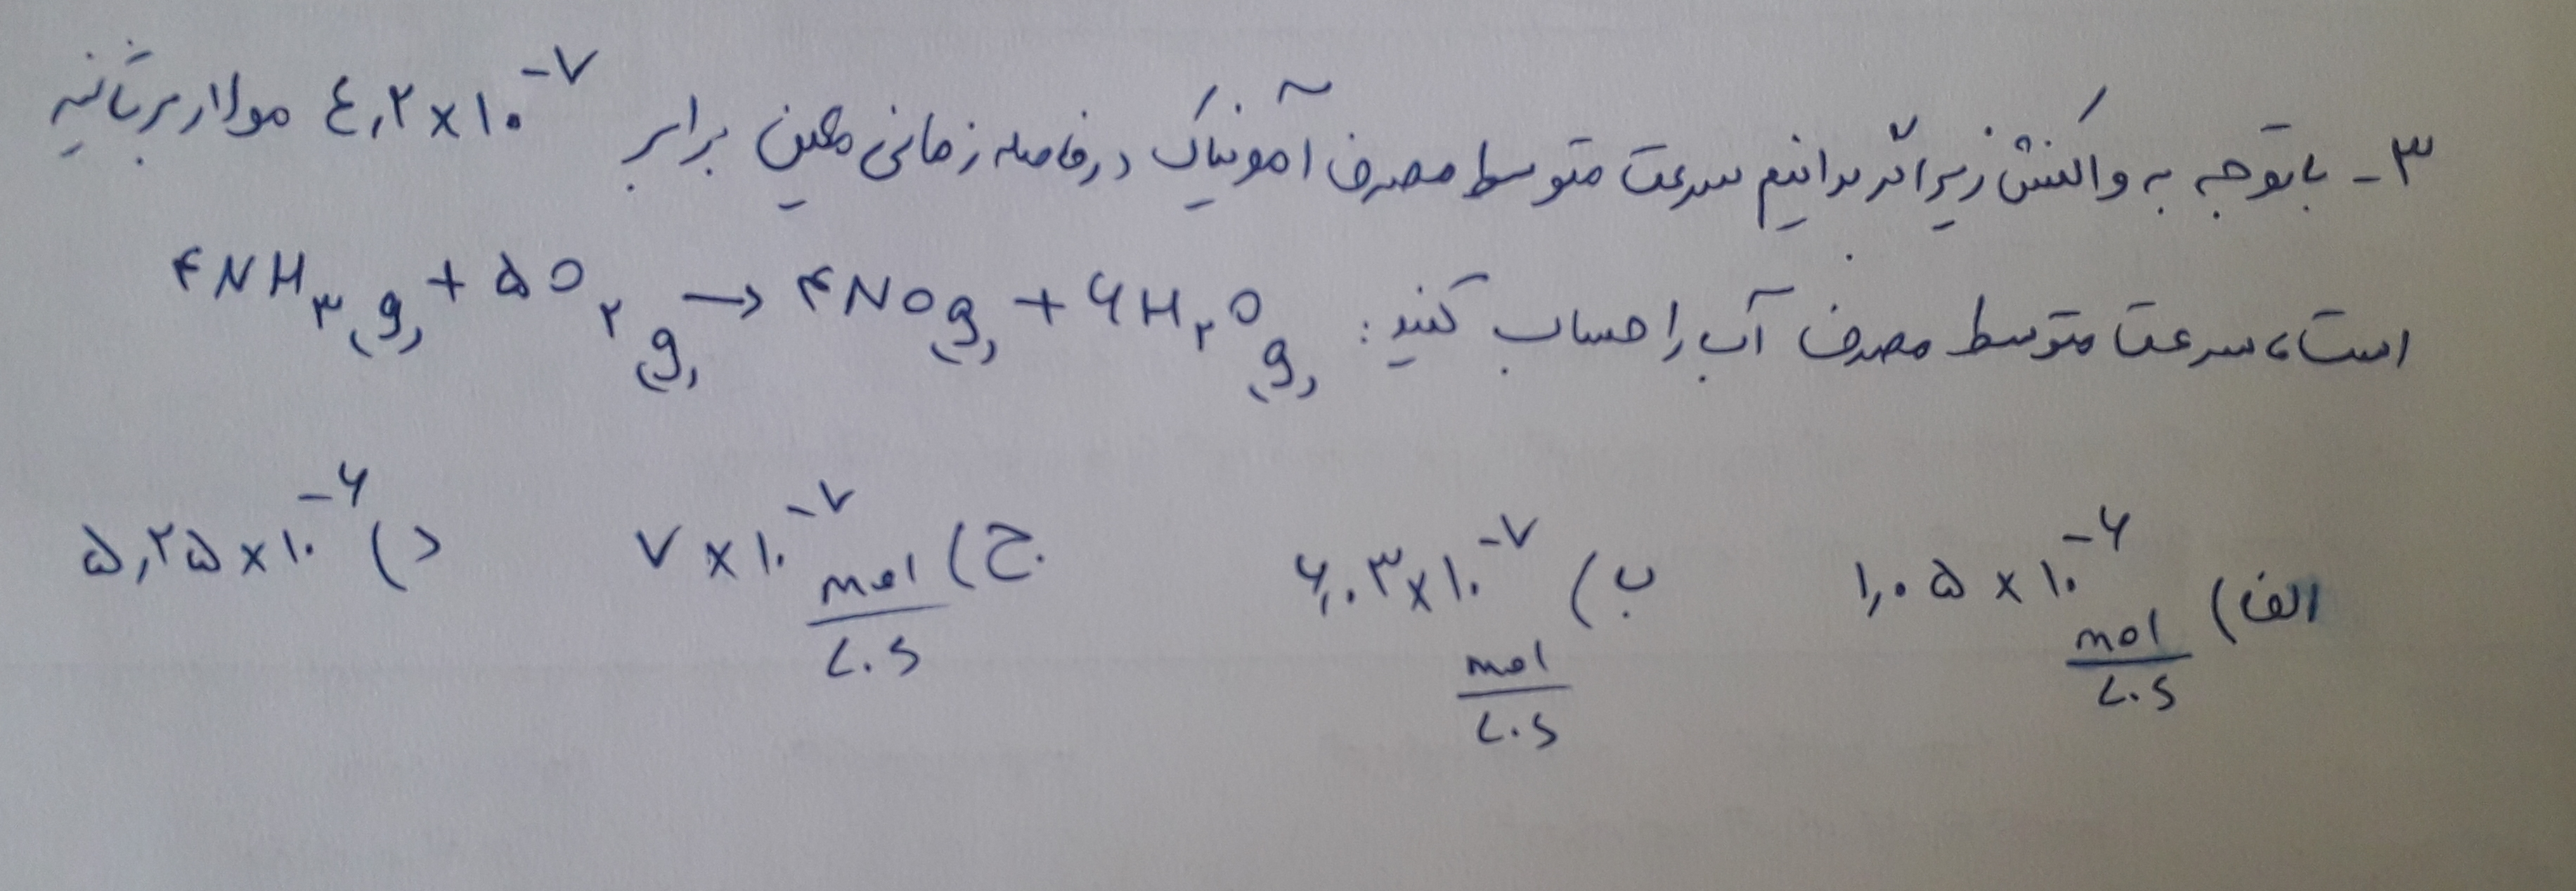 ۳- باتوجه به واکنش زیر اگر بدانیم سرعت متوسط مصرف آمونیاک در فاصله زمانی معین برابر ۴٫۲×۱۰⁻۷ مولار بر ثانیه
است، سرعت متوسط مصرف آب را حساب کنید: ۴NH۳(g) + ۵O۲(g) → ۴NO(g) + ۶H۲O(g)
الف) ۱٫۰۵×۱۰⁻۶ mol/L.S ب) ۶٫۰۳×۱۰⁻۷ mol/L.S ج) ۷×۱۰⁻۷ mol/L.S د) ۵٫۲۵×۱۰⁻۶